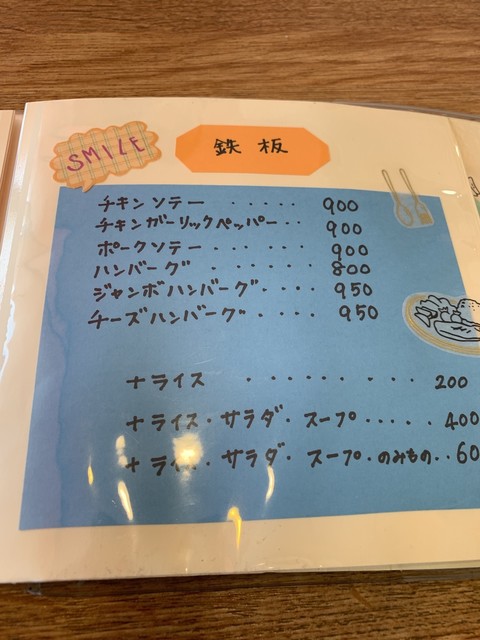 SMILE
鉄板
チキンソテー ・・・・・ 900
チキンガーリックペッパー・・ 900
ポークソテー・・・・・・ 900
ハンバーグ ・・・・・・ 800
ジャンボハンバーグ・・・・ 950
チーズハンバーグ・・・・ 950
+ライス ・・・・・・・・ 200
+ライス・サラダ・スープ・・・・・ 400
+ライ ・サラダ・スープ・のみもの・・